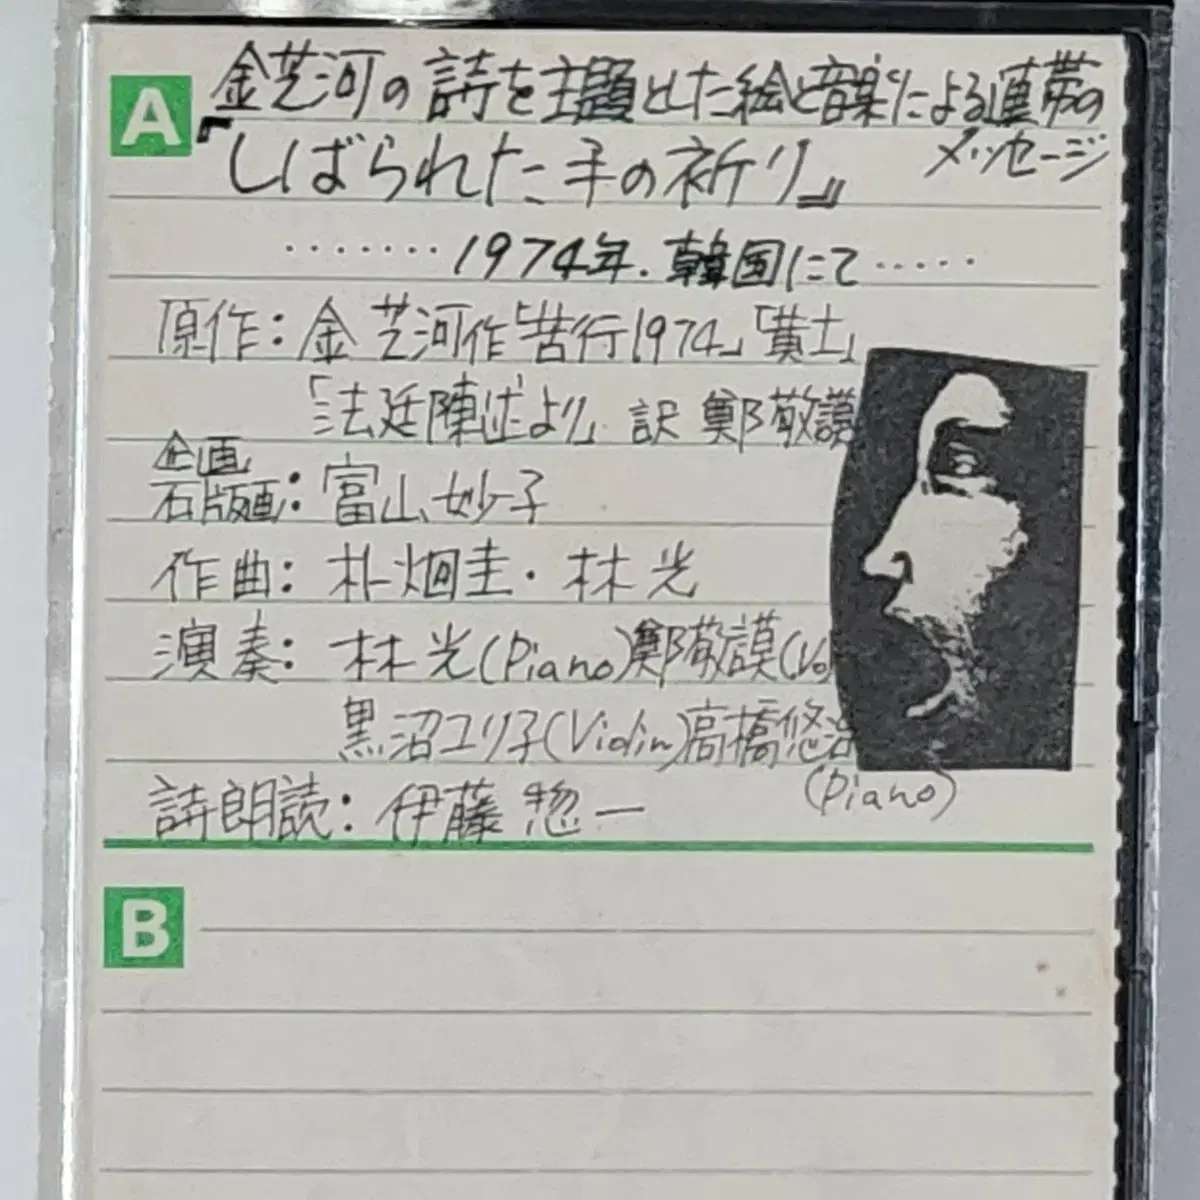 A 金芝河の詩を主題とした絵と音楽による連帯の
メッセージ
『しばられた手の祈り』
‥‥‥‥1974年.韓国にて‥‥‥
原作:金芝河作「苦行1974」「黄土」
「法廷陳述より」 訳 鄭敬謨
企画
石版画:富山妙子
作曲:朴烱圭・林光
演奏:林光(Piano)鄭敬謨(Vo
黒沼ユリ子(Violin)高橋悠治
(Piano)
詩朗読:伊藤惣一
B